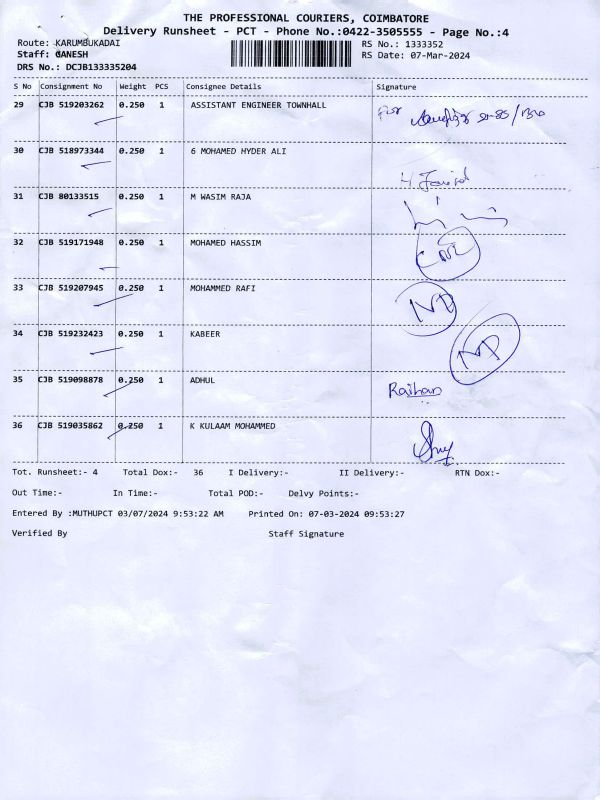 THE PROFESSIONAL COURIERS, COIMBATORE
Delivery Runsheet - PCT - Phone No.:0422-3505555 - Page No.:4
Route: KARUMBUKADAI RS No.: 1333352
Staff: GANESH RS Date: 07-Mar-2024
DRS No.: DCJB133335204
S No Consignment No Weight PCS Consignee Details Signature
29 CJB 519203262 0.250 1 ASSISTANT ENGINEER TOWNHALL For
30 CJB 518973344 0.250 1 6 MOHAMED HYDER ALI
31 CJB 80133515 0.250 1 M WASIM RAJA
32 CJB 519171948 0.250 1 MOHAMED HASSIM
33 CJB 519207945 0.250 1 MOHAMMED RAFI ND
34 CJB 519232423 0.250 1 KABEER ND
35 CJB 519098878 0.250 1 ADHUL Raihan
36 CJB 519035862 0.250 1 K KULAAM MOHAMMED
Tot. Runsheet:- 4 Total Dox:- 36 I Delivery:- II Delivery:- RTN Dox:-
Out Time:- In Time:- Total POD:- Delvy Points:-
Entered By :MUTHUPCT 03/07/2024 9:53:22 AM Printed On: 07-03-2024 09:53:27
Verified By Staff Signature